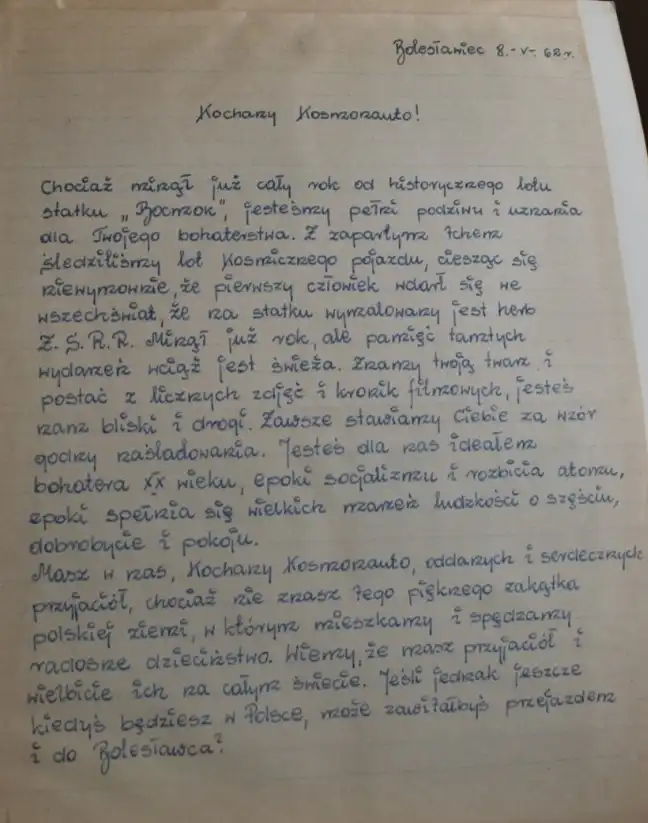 Bolesławiec 8.-V-. 62r.
Kochany Kosmonauto!
Chociaż minął już cały rok od historycznego lotu
statku „Wostok", jesteśmy pełni podziwu i uznania
dla Twojego bohaterstwa. Z zapartym tchem
śledziliśmy lot kosmicznego pojazdu, ciesząc się
niewymownie, że pierwszy człowiek wdarł się we
wszechświat, że na statku wymalowany jest herb
Z.S.R.R. Minął już rok, ale pamięć tamtych
wydarzeń wciąż jest świeża. Znamy twoją twarz i
postać z licznych zdjęć i kronik filmowych, jesteś
nam bliski i drogi. Zawsze stawiamy Ciebie za wzór
godny naśladowania. Jesteś dla nas ideałem
bohatera XX wieku, epoki socjalizmu i rozbicia atomu,
epoki spełnia się wielkich marzeń ludzkości o szęściu,
dobrobycie i pokoju.
Masz w nas, Kochany Kosmonauto, oddanych i serdecznych
przyjaciół, chociaż nie znasz tego pięknego zakątka
polskiej ziemi, w którym mieszkamy i spędzamy
radosne dzieciństwo. Wiemy, że masz przyjaciół i
wielbicie ich na całym świecie. Jeśli jednak jeszcze
kiedyś będziesz w Polsce, może zawitałbyś przejazdem
i do Bolesławca?